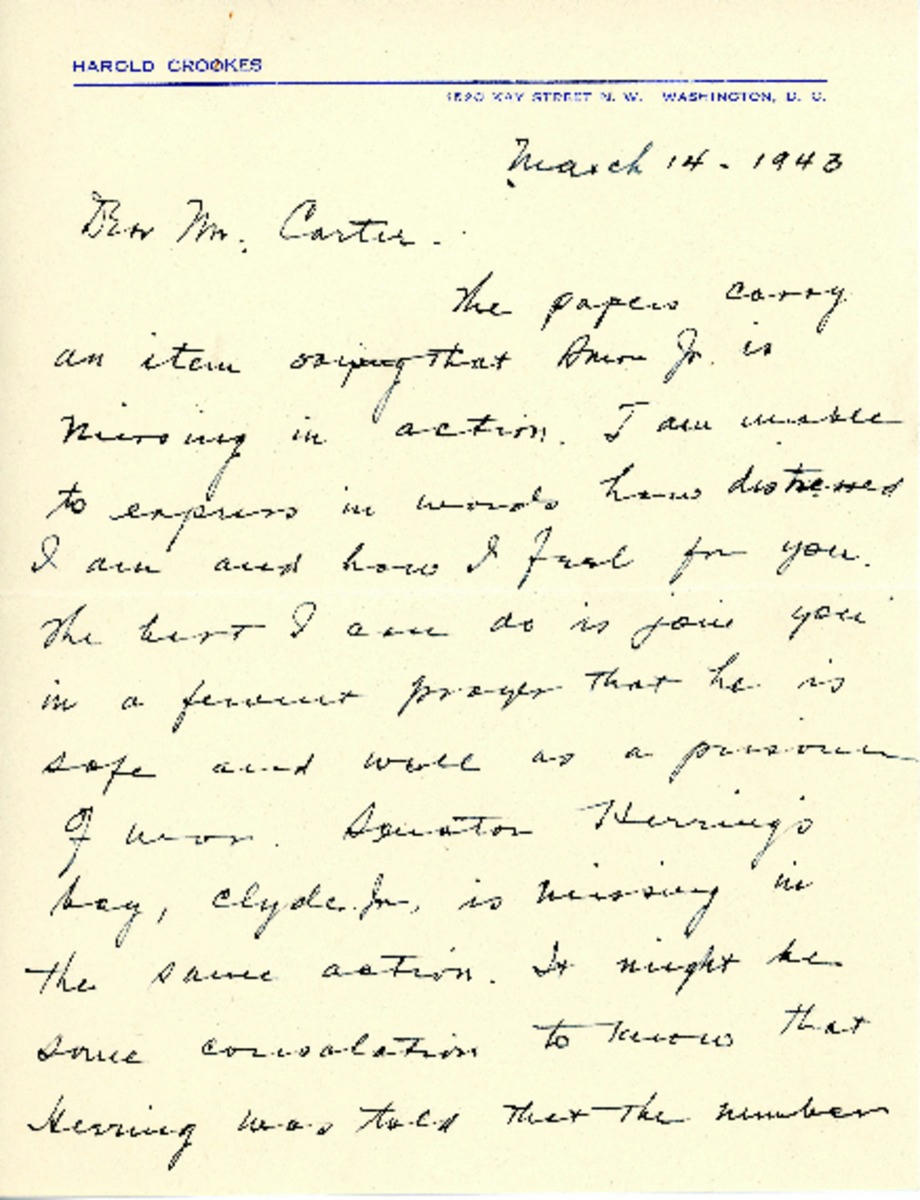 HAROLD CROOKES
1520 KAY STREET N. W. WASHINGTON, D. C.
March 14 - 1943
Dear Mr. Carter.
The papers carry
an item saying that Amon Jr. is
missing in action. I am unable
to express in words how distressed
I am and how I feel for you.
The best I can do is join you
in a fervent prayer that he is
safe and well as a prisoner
of war. Senator Herring's
boy, Clyde Jr., is missing in
the same action. It might be
some consolation to know that
Herring was told that the number